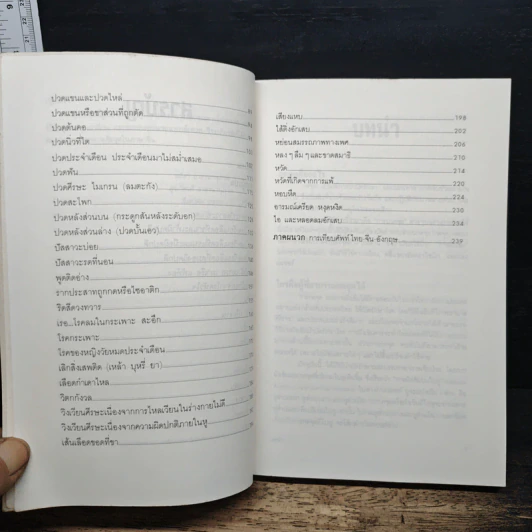 ปวดแขนและปวดไหล่
ปวดแขนหรือขาส่วนที่ถูกตัด
ปวดต้นคอ
ปวดนิ่วที่ไต
ปวดประจำเดือน ประจำเดือนมาไม่สม่ำเสมอ
ปวดฟัน
ปวดศีรษะ ไมเกรน (ลมตะกัง)
ปวดสะโพก
ปวดหลังส่วนบน (กระดูกสันหลังระดับอก)
ปวดหลังส่วนล่าง (ปวดบั้นเอว)
ปัสสาวะบ่อย
ปัสสาวะรดที่นอน
พูดติดอ่าง
รากประสาทถูกกดหรือไซอาติก
ริดสีดวงทวาร
เรอ...โรคลมในกระเพาะ สะอึก
โรคกระเพาะ
โรคของหญิงวัยหมดประจำเดือน
เลิกสิ่งเสพติด (เหล้า บุหรี่ ยา)
เลือดกำเดาไหล
วิตกกังวล
วิงเวียนศีรษะเนื่องจากการไหลเวียนในร่างกายไม่ดี
วิงเวียนศีรษะเนื่องจากความผิดปกติภายในหู
เส้นเลือดขอดที่ขา
เสียงแหบ 198
ไส้ติ่งอักเสบ 202
หย่อนสมรรถภาพทางเพศ 206
หลง ๆ ลืม ๆ และขาดสมาธิ 210
หวัด 214
หวัดที่เกิดจากการแพ้ 220
หอบหืด 224
อารมณ์เครียด หงุดหงิด 230
ไอ และหลอดลมอักเสบ 234
ภาคผนวก การเทียบศัพท์ ไทย-จีน-อังกฤษ 239